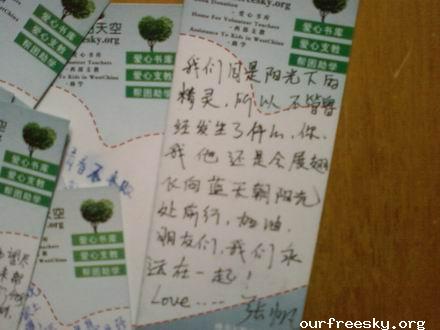 天空
y.org
爱心书库
爱心支教
帮困助学
freesky.org
Book Donation
- 爱心书库
Home For Volunteer Teachers
- 西部支教
Assistance To Kids in WestChina
- 助学
爱心书库
爱心支教
帮困助学
我们同是阳光下的
精灵,所以不管曾
经发生了什么,你、
我 他 还是会展翅
飞向蓝天朝阳光
处前行,加油,
朋友们,我们永
远在一起!
Love.....
爱心书库
爱心支教
帮困助学
天空
y.org
爱心书库
爱心支教
帮困助学
ourfreesky.org